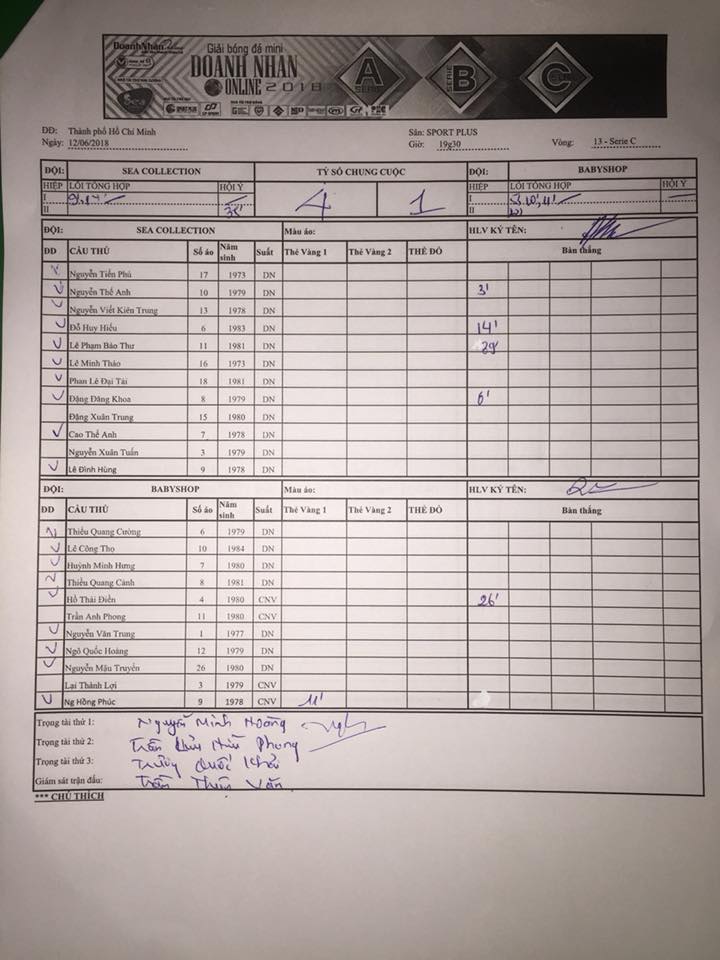 DoanhNhân
Giải bóng đá mini
DOANH NHÂN
ONLINE 2018
SERIE A
SERIE B
C
SPORT PLUS
DĐ: Thành phố Hồ Chí Minh Sân: SPORT PLUS
Ngày: 12/06/2018 Giờ: 19g30 Vòng: 13 - Serie C
ĐỘI: SEA COLLECTION TỶ SỐ CHUNG CUỘC ĐỘI: BABYSHOP
HIỆP LỖI TỔNG HỢP HỘI Ý 4 1 HIỆP LỖI TỔNG HỢP HỘI Ý
I I
II 35' II
ĐỘI: SEA COLLECTION Màu áo: HLV KÝ TÊN:
DD CẦU THỦ Số áo Năm sinh Suất Thẻ Vàng 1 Thẻ Vàng 2 THẺ ĐỎ Bàn thắng
Nguyễn Tiến Phú 17 1973 DN
Nguyễn Thế Anh 10 1979 DN 3'
Nguyễn Viết Kiên Trung 13 1978 DN
Đỗ Huy Hiếu 6 1983 DN 14'
Lê Phạm Bảo Thư 11 1981 DN 29'
Lê Minh Thảo 16 1973 DN
Phan Lê Đại Tài 18 1981 DN
Đặng Đăng Khoa 8 1979 DN 6'
Đặng Xuân Trung 15 1980 DN
Cao Thế Anh 7 1978 DN
Nguyễn Xuân Tuấn 3 1979 DN
Lê Đình Hùng 9 1978 DN
ĐỘI: BABYSHOP Màu áo: HLV KÝ TÊN:
DD CẦU THỦ Số áo Năm sinh Suất Thẻ Vàng 1 Thẻ Vàng 2 THẺ ĐỎ Bàn thắng
Thiều Quang Cường 6 1979 DN
Lê Công Thọ 10 1984 DN
Huỳnh Minh Hưng 7 1980 DN
Thiều Quang Cảnh 8 1981 DN
Hồ Thái Điền 4 1980 CNV 26'
Trần Anh Phong 11 1980 CNV
Nguyễn Văn Trung 1 1977 DN
Ngô Quốc Hoàng 12 1979 DN
Nguyễn Mậu Truyền 26 1980 DN
Lại Thành Lợi 3 1979 CNV
Ng Hồng Phúc 9 1978 CNV 11'
Trọng tài thứ 1: Nguyễn Minh Hoàng
Trọng tài thứ 2: Trần Hữu Phong
Trọng tài thứ 3: Quốc
Giám sát trận đấu: Trần Văn
*** CHÚ THÍCH